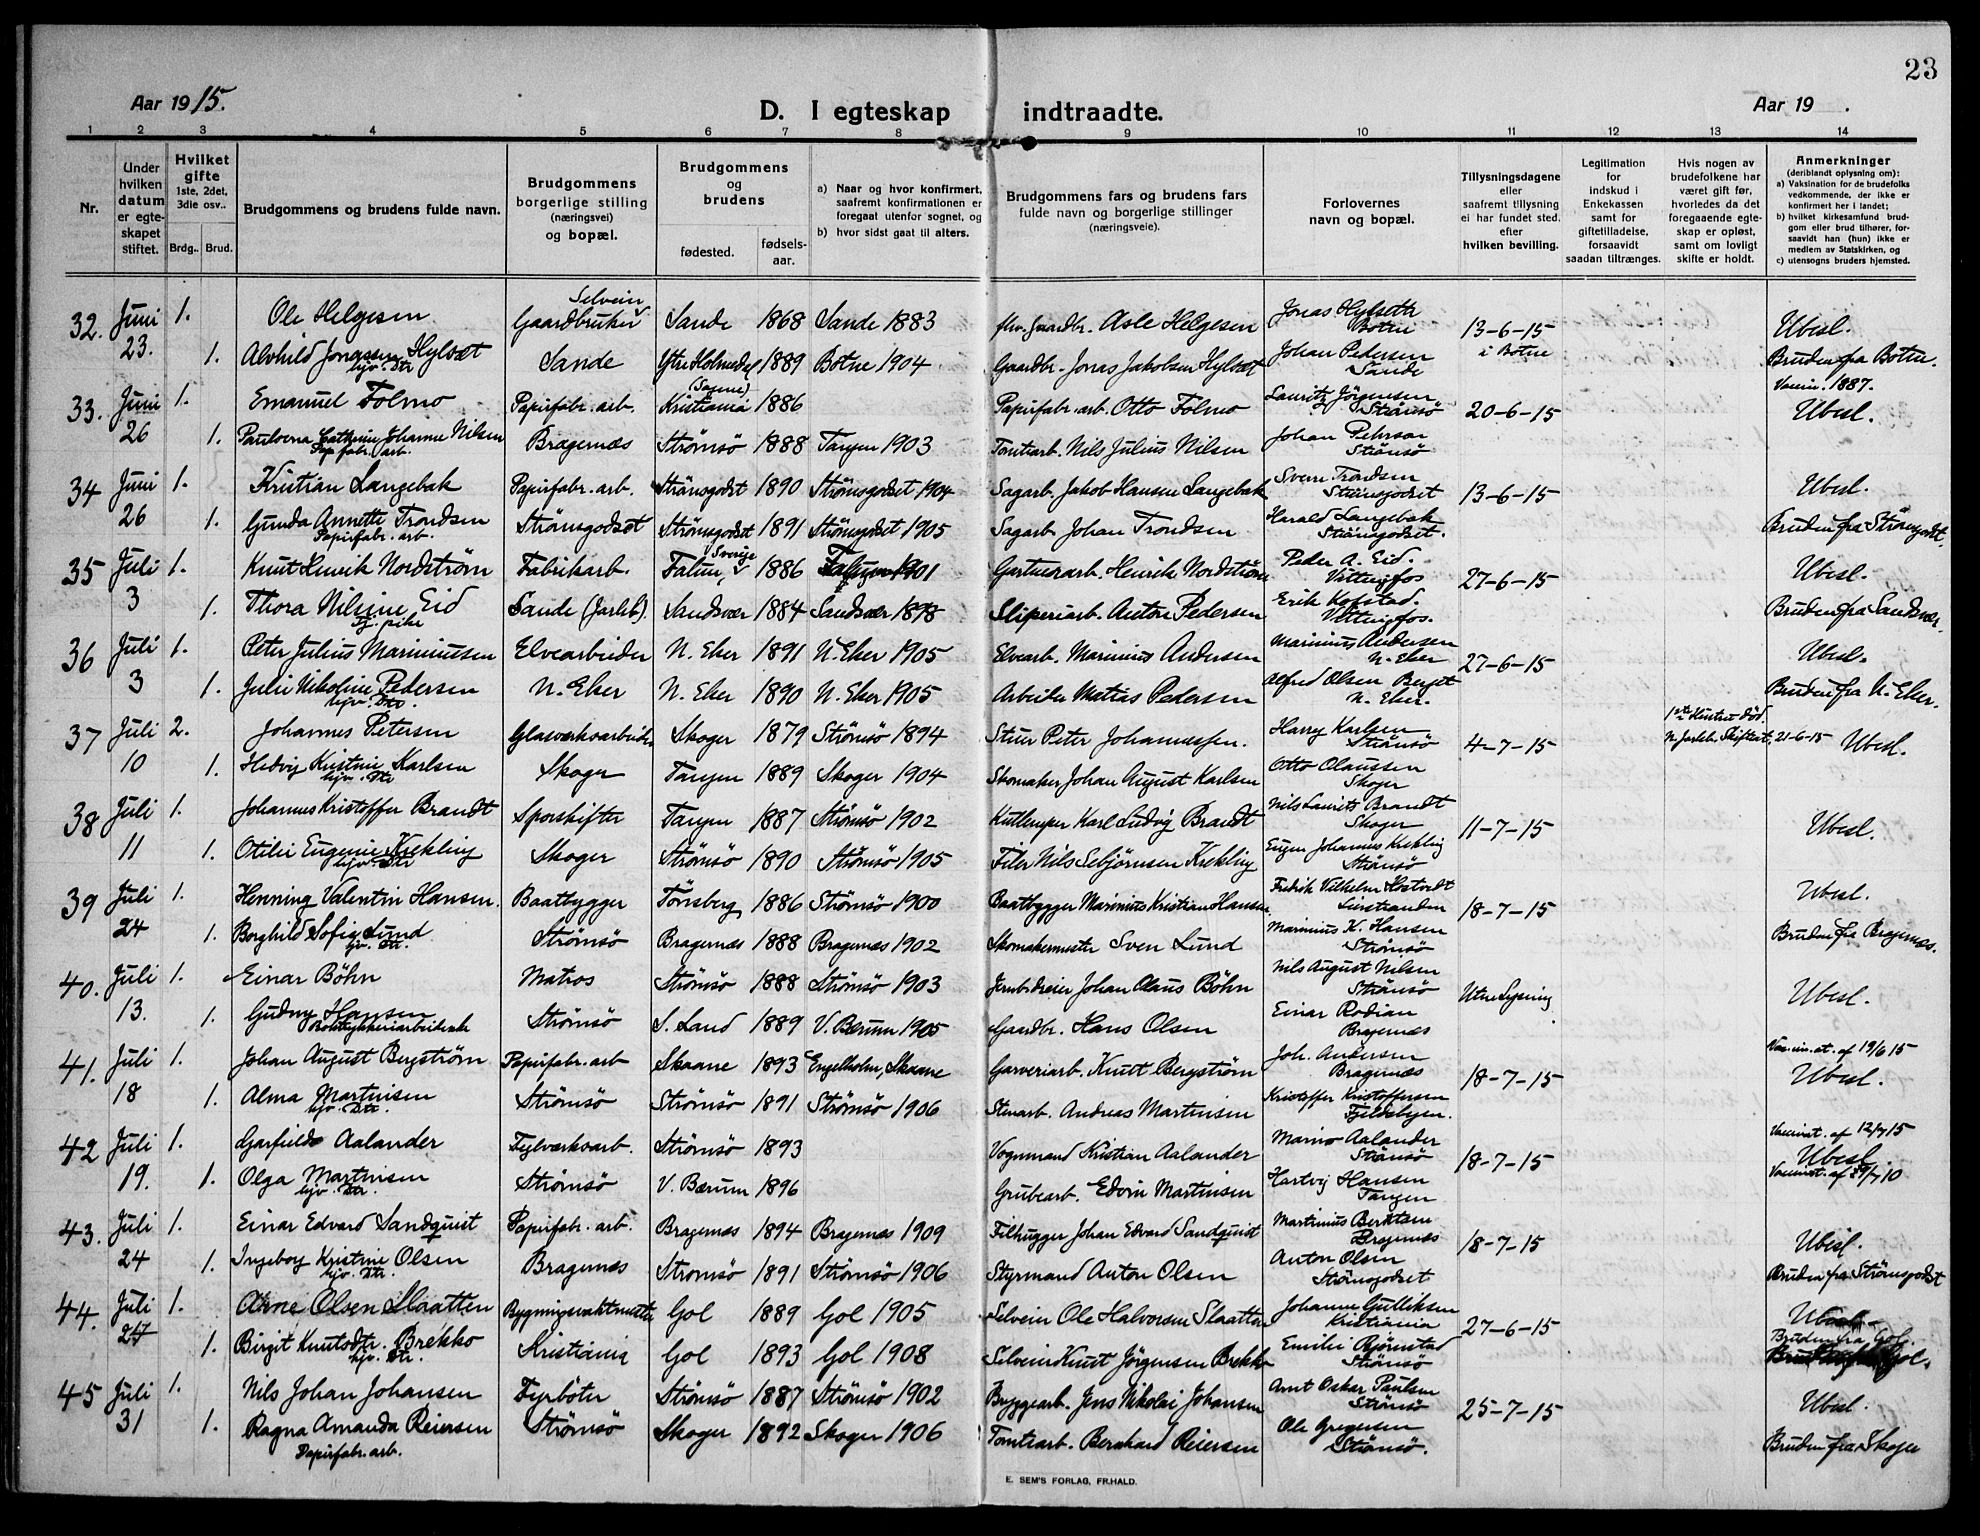 23
Aar 1915.
D. I egteskap indtraadte.
Aar 19 .
1 2 3 4 5 6 7 8 9 10 11 12 13 14
Nr.
Under hvilken datum er egteskapet stiftet.
Hvilket gifte 1ste, 2det, 3die osv..
Brdg.. Brud.
Brudgommens og brudens fulde navn.
Brudgommens borgerlige stilling (næringsvei) og bopæl.
Brudgommens og brudens
fødested. fødselsaar.
a) Naar og hvor konfirmert, saafremt konfirmationen er foregaat utenfor sognet, og
b) hvor sidst gaat til alters.
Brudgommens fars og brudens fars fulde navn og borgerlige stillinger (næringsveie).
Forlovernes navn og bopæl.
Tillysningsdagene eller saafremt tillysning ei har fundet sted. efter hvilken bevilling.
Legitimation for indskud i Enkekassen samt for giftetilladelse, forsaavidt saadan tiltrænges.
Hvis nogen av brudefolkene har været gift før, hvorledes da det foregaaende egteskap er opløst, samt om lovligt skifte er holdt.
Anmerkninger (deriblandt oplysning om):
a) Vaksination for de brudefolks vedkommende, der ikke er konfirmert her i landet;
b) hvilket kirkesamfund brudgom eller brud tilhører, forsaavidt han (hun) ikke er medlem av Statskirken, og
c) utensogns bruders hjemsted.
32. Juni 1. Ole Helgesen Selveier Gaardbruker Sande 1868 Sande 1883 fhv. Gaardbr. Asle Helgesen Jonas Hylseth Botne 13-6-15 i Botne Ubesl.
23. 1. Alvhild Jonassen Hylset hjv. Dtr Sande 1889 Botne 1904 Gaardbr. Jonas Jakobsen Hylset Johan Pedersen Sande Bruden fra Botne.
33. Juni 1. Emanuel Folmo Papirfabr. arb. Kristiania 1886 Papirfabr. arb. Otto Folmo Lauritz Jörgensen Strömsö 20-6-15 Vaccin. 1887. Ubesl.
26 1. Paulvena Cathrine Johanne Nilsen Papirfabr. arb. Bragernæs Strömsö 1888 Tangen 1903 Tomtearb. Nils Julius Nilsen Johan Pehrson Strömsö
34 Juni 1. Kristian Langebak Papirfabr. arb. Strömsgodset 1890 Strömsgodset 1904 Sagarb. Jakob Hansen Langebak Sven Trondsen Strömsgodset 13-6-15 Ubesl.
26 1. Gunda Annette Trondsen Papirfabr. arb. Strömsgodset Strömsgodset 1891 Strömsgodset 1905 Sagarb. Johan Trondsen Harald Langebak Strömsgodset. Bruden fra Strömsgodset.
35 Juli 1. Knut Henrik Nordström Fabrikarb. Falun, Sverige 1886 Falun 1901 Gartnerarb. Henrik Nordström Peder A. Eid. Vittingfos 27-6-15 Ubesl.
3 1. Thora Nilsine Eid Tj. pike Sande (Jarlsb). Sandsvær 1884 Sandsvær Sliperiarb. Anton Pedersen Erik Kofstad. Vittingfos. Bruden fra Sandsvær.
36 Juli 1. Peter Julius Marinussen Elvearbeider N. Eker 1891 N. Eker 1905 Elvearb. Marinius Andersen Marinius Andersen N. Eker 27-6-15 Ubesl.
3 1. Julie Nikoline Pedersen hjv. Dtr. N. Eker N. Eker 1890 N. Eker 1905 Arbeider Matias Pedersen Alfred Olsen Berget N. Eker. Bruden fra N. Eker.
37 Juli 2. Johannes Petersen Glasverksarbeider Skoger 1879 Strömsö 1894 Stuer Peter Johannessen. Harry Karlsen Strömsö 4-7-15 1ste Hustru död. N. Jarlsb. Skifteret. 21-6-15 Ubesl.
10 1. Hedvig Kristine Karlsen hjv. Dtr Skoger Tangen 1889 Skoger 1904 Skomaker Johan August Karlsen Otto Olaussen Skoger
38 Juli 1. Johannes Kristoffer Brandt Sporskifter Tangen 1887 Strömsö 1902 Karl Ludvig Brandt Nils Laurits Brandt Skoger 11-7-15 Ubesl.
11 1. Otilie Eugenie Krekling hjv. Dtr Skoger Strömsö 1890 Strömsö 1905 Filer Nils Sebjörnsen Krekling Eugen Johannes Krekling Strömsö
39 Juli 1. Henning Valentin Hansen. Baatbygger Tönsberg 1886 Strömsö 1900 Baatbygger Marinius Kristian Hansen. Fredrik Vilhelm Hostvedt Linstranden 18-7-15 Ubesl.
24 1. Borghild Sofie Lund hjv. Dtr. Strömsö Bragernæs 1888 Bragernæs 1902 Skomakermester Sven Lund Marinius K. Hansen Strömsö Bruden fra Bragernæs.
40. Juli 1. Einar Böhn Matros Strömsö 1888 Strömsö 1903 Jernbdreier Johan Olaus Böhn Nils August Nilsen Strömsö Uten lysning Ubesl.
13. 1. Gudny Hansen Strömsö S. Land 1889 V. Bærum 1905 Gaardbr. Hans Olsen Einar Rodian Bragernæs
41. Juli 1. Johan August Bergström Papirfabr. arb Skaane 1893 Engelholm, Skaane Garveriarb. Knut Bergström Joh. Andersen Bragernæs 18-7-15 Vaccin. at. af 19/6 15 Ubesl.
18 1. Alma Martinsen hjv. Dtr Strömsö Strömsö 1891 Strömsö 1906 Stenarb. Andreas Martinsen Kristoffer Kristoffersen Fjeldsbyen.
42 Juli 1. Garfield Aalander Strömsö 1893 Vognmand Kristian Aalander Marino Aalander Strömsö 18-7-15 Vaccinat. af 12/7 15 Ubesl
19. 1. Olga Martinsen hjv. Dtr. Strömsö V. Bærum 1896 Grubearb. Edvin Martinsen Hartvig Hansen Tangen Vaccinat. af 29/7 10
43. Juli 1. Einar Edvard Sandquist Papirfabr. arb. Bragernæs 1894 Bragernæs 1909 Filhugger Johan Edvard Sandquist Martinius Berntsen Bragernæs 18-7-15 Ubesl.
24 1. Ingeborg Kristine Olsen hjv. Dtr. Bragernæs Strömsö 1891 Strömsö 1906 Styrmand Anton Olsen Anton Olsen Strömsgodset Bruden fra Strömsgodset
44. Juli 1. Arne Olsen Slaatten Bygningsvaktmester Gol 1889 Gol 1905 Selveier Ole Halvorsen Slaatten Johanne Gulliksen Kristiania 27-6-15 Ubesl.
1. Birgit Knutsdtr. Brekko hjv. Dtr. Kristiania Gol 1893 Gol 1908 Selveier Knut Jörgensen Brekko Emilie Björnstad Strömsö Bruden fra Gol.
45 Juli 1. Nils Johan Johansen Fyrböter Strömsö 1887 Strömsö 1902 Bryggearb. Jens Nikolai Johansen Arnt Oskar Paulsen Strömsö 25-7-15 Ubesl.
31 1. Ragna Amanda Reiersen Papirfabr. arb. Strömsö Skoger 1892 Skoger 1906 Tomtearb. Bernhard Reiersen Ole Gregersen Strömsö. Bruden fra Skoger
E. SEM'S FORLAG, FR.HALD.